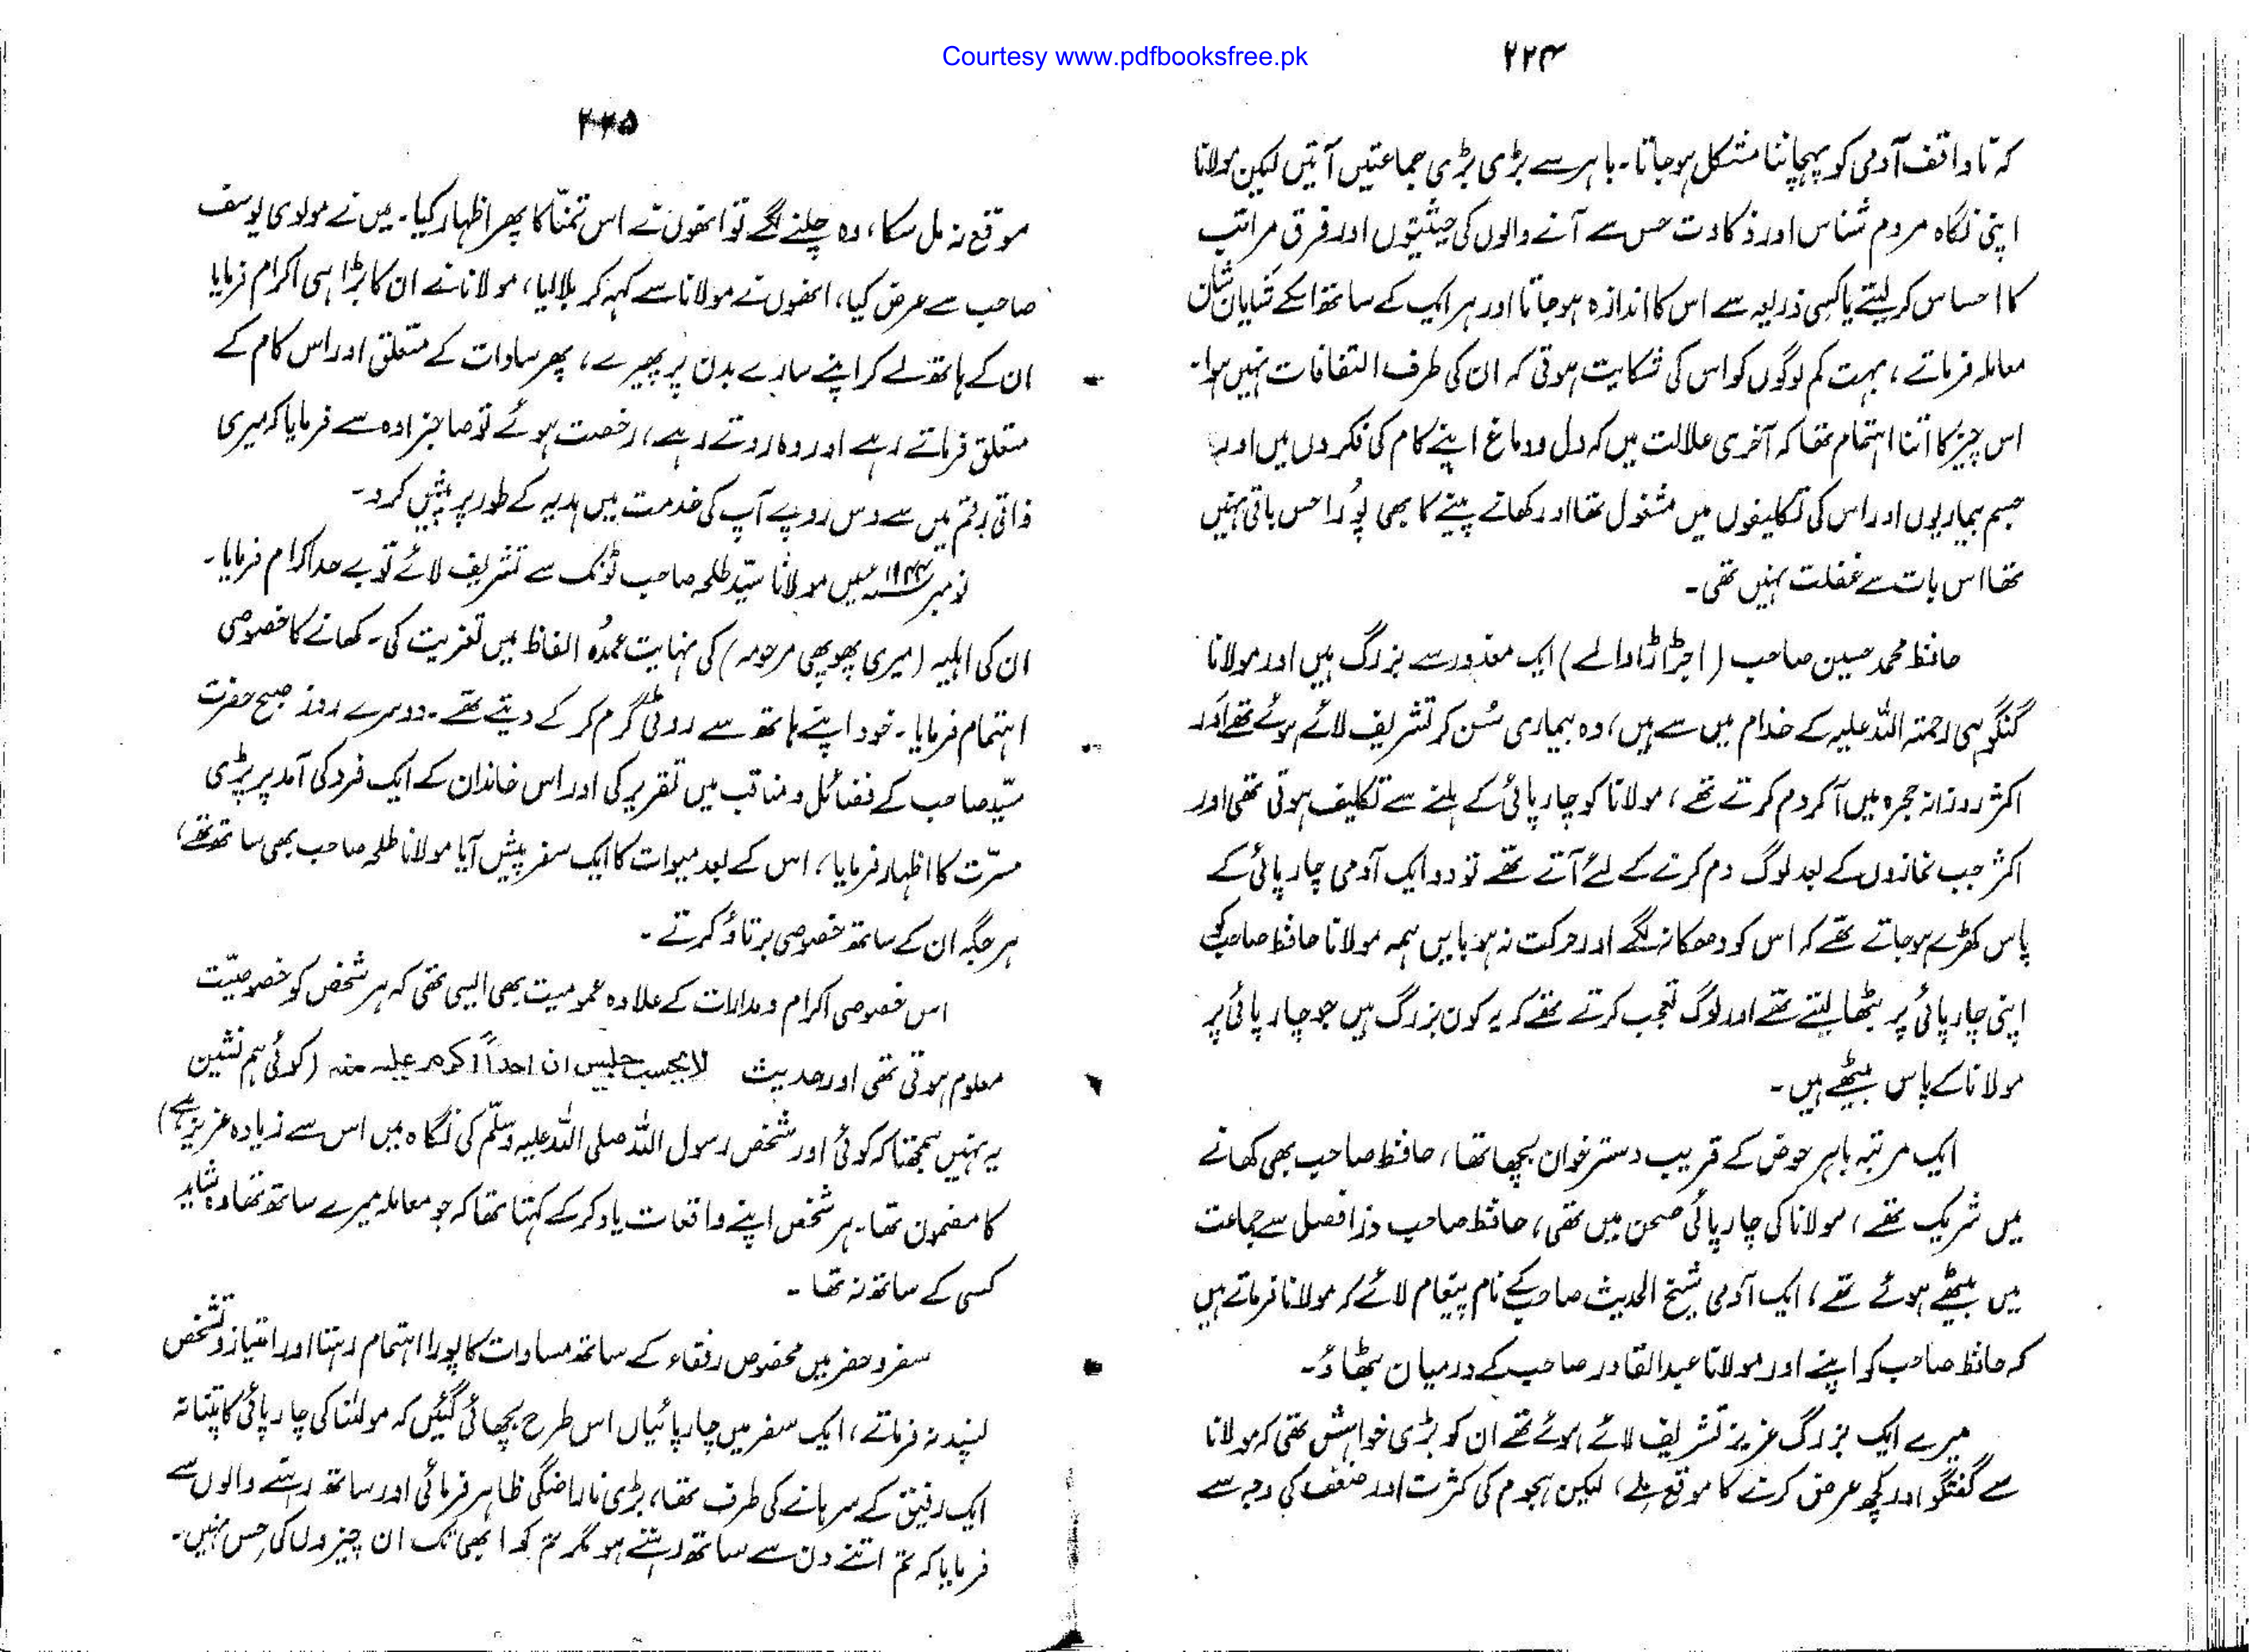 Courtesy www.pdfbooksfree.pk
۲۲۴
کہ ناواقف آدمی کو پہچاننا مشکل ہوجاتا۔ باہر سے بڑی بڑی جماعتیں آتیں لیکن مولانا
اپنی نگاہ مردم شناس اور ذکاوت حس سے آنے والوں کی حیثیتوں اور فرق مراتب
کا احساس کرلیتے یا کسی ذریعہ سے اس کا اندازہ ہوجاتا اور ہر ایک کے ساتھ اسکے شایان شان
معاملہ فرماتے، بہت کم لوگوں کو اس کی شکایت ہوتی کہ ان کی طرف التفافات نہیں ہوا۔
اس چیز کا اتنا اہتمام تھا کہ آخری علالت میں کہ دل ودماغ اپنے کام کی فکروں میں اور
جسم بیماریوں اور اس کی تکلیفوں میں مشغول تھا اور کھانے پینے کا بھی پُورا حس باقی نہیں
تھا اس بات سے غفلت نہیں تھی۔
حافظ محمد حسین صاحب (اجڑاڑا والے) ایک معذور سے بزرگ ہیں اور مولانا
گنگوہی رحمتہ اللہ علیہ کے خدام میں سے ہیں، وہ بیماری سُن کر تشریف لائے ہوئے تھے اور
اکثر روزانہ حجرہ میں آکر دم کرتے تھے، مولانا کو چارپائی کے ہلنے سے تکلیف ہوتی تھی اور
اکثر جب نمازوں کے بعد لوگ دم کرنے کے لئے آتے تھے تو دو ایک آدمی چارپائی کے
پاس کھڑے ہوجاتے تھے کہ اس کو دھکا نہ لگے اور حرکت نہ ہو بایں ہمہ مولانا حافظ صاحب کو
اپنی چارپائی پر بٹھا لیتے تھے اور لوگ تعجب کرتے تھے کہ یہ کون بزرگ ہیں جو چارپائی پر
مولانا کے پاس بیٹھے ہیں۔
ایک مرتبہ باہر حوض کے قریب دسترخوان بچھا تھا، حافظ صاحب بھی کھانے
میں شریک تھے، مولانا کی چارپائی صحن میں تھی، حافظ صاحب ذرا فصل سے جماعت
میں بیٹھے ہوئے تھے، ایک آدمی شیخ الحدیث صاحب کے نام پیغام لائے کہ مولانا فرماتے ہیں
کہ حافظ صاحب کو اپنے اور مولانا عبدالقادر صاحب کے درمیان بٹھاؤ۔
میرے ایک بزرگ عزیز تشریف لائے ہوئے تھے ان کو بڑی خواہش تھی کہ مولانا
سے گفتگو اور کچھ عرض کرنے کا موقع ملے، لیکن ہجوم کی کثرت اور ضعف کی وجہ سے
۲۲۵
موقع نہ مل سکا، وہ چلنے لگے تو انھوں نے اس تمنّا کا پھر اظہار کیا۔ میں نے مولوی یوسف
صاحب سے عرض کیا، انھوں نے مولانا سے کہہ کر بلالیا، مولانا نے ان کا بڑا ہی اکرام فرمایا
ان کے ہاتھ لے کر اپنے سارے بدن پر پھیرے، پھر سادات کے متعلق اور اس کام کے
متعلق فرماتے رہے اور وہ روتے رہے، رخصت ہوئے تو صاحبزادہ سے فرمایا کہ میری
ذاتی رقم میں سے دس روپے آپ کی خدمت میں ہدیہ کے طور پر پیش کردو۔
نومبر ۱۹۴۳ء میں مولانا سیّد طلحہ صاحب ٹونک سے تشریف لائے تو بے حد اکرام فرمایا۔
ان کی اہلیہ (میری پھوپھی مرحومہ) کی نہایت عمدہ الفاظ میں تعزیت کی۔ کھانے کا خصوصی
اہتمام فرمایا۔ خود اپنے ہاتھ سے روٹی گرم کر کے دیتے تھے۔ دوسرے روز صبح حضرت
سیّد صاحب کے فضائل ومناقب میں تقریر کی اور اس خاندان کے ایک فرد کی آمد پر بڑی
مسرّت کا اظہار فرمایا، اس کے بعد میوات کا ایک سفر پیش آیا مولانا طلحہ صاحب بھی ساتھ تھے،
ہر جگہ ان کے ساتھ خصوصی برتاؤ کرتے۔
اس خصوصی اکرام ومدارات کے علاوہ عمومیت بھی ایسی تھی کہ ہر شخص کو خصوصیّت
معلوم ہوتی تھی اور حدیث لا یحسب جلیس ان احداً اکرم علیہ منہ (کوئی ہم نشین
یہ نہیں سمجھتا کہ کوئی اور شخص رسول اللہ صلی اللہ علیہ وسلّم کی نگاہ میں اس سے زیادہ عزیز ہے)
کا مضمون تھا۔ ہر شخص اپنے واقعات یاد کرکے کہتا تھا کہ جو معاملہ میرے ساتھ تھا وہ شاید
کسی کے ساتھ نہ تھا۔
سفر وحضر میں مخصوص رفقاء کے ساتھ مساوات کا پورا اہتمام رہتا اور امتیاز وتشخص
پسند نہ فرماتے، ایک سفر میں چارپائیاں اس طرح بچھائی گئیں کہ مولٰنا کی چارپائی کا پیتانہ
ایک رفیق کے سرہانے کی طرف تھا، بڑی ناراضگی ظاہر فرمائی اور ساتھ رہنے والوں سے
فرمایا کہ تم اتنے دن سے ساتھ رہتے ہو مگر تم کو ابھی تک ان چیزوں کی حس نہیں۔